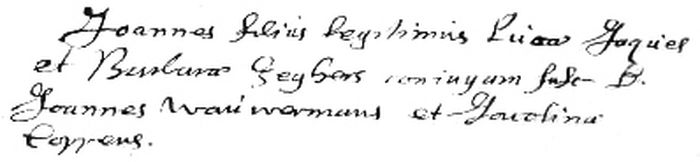 Joannes filius legitimus Lucae Jaques
et Barbarae Seghers coniugum susc- D.
Joannes Wauwermans et Joculina
Coppens.